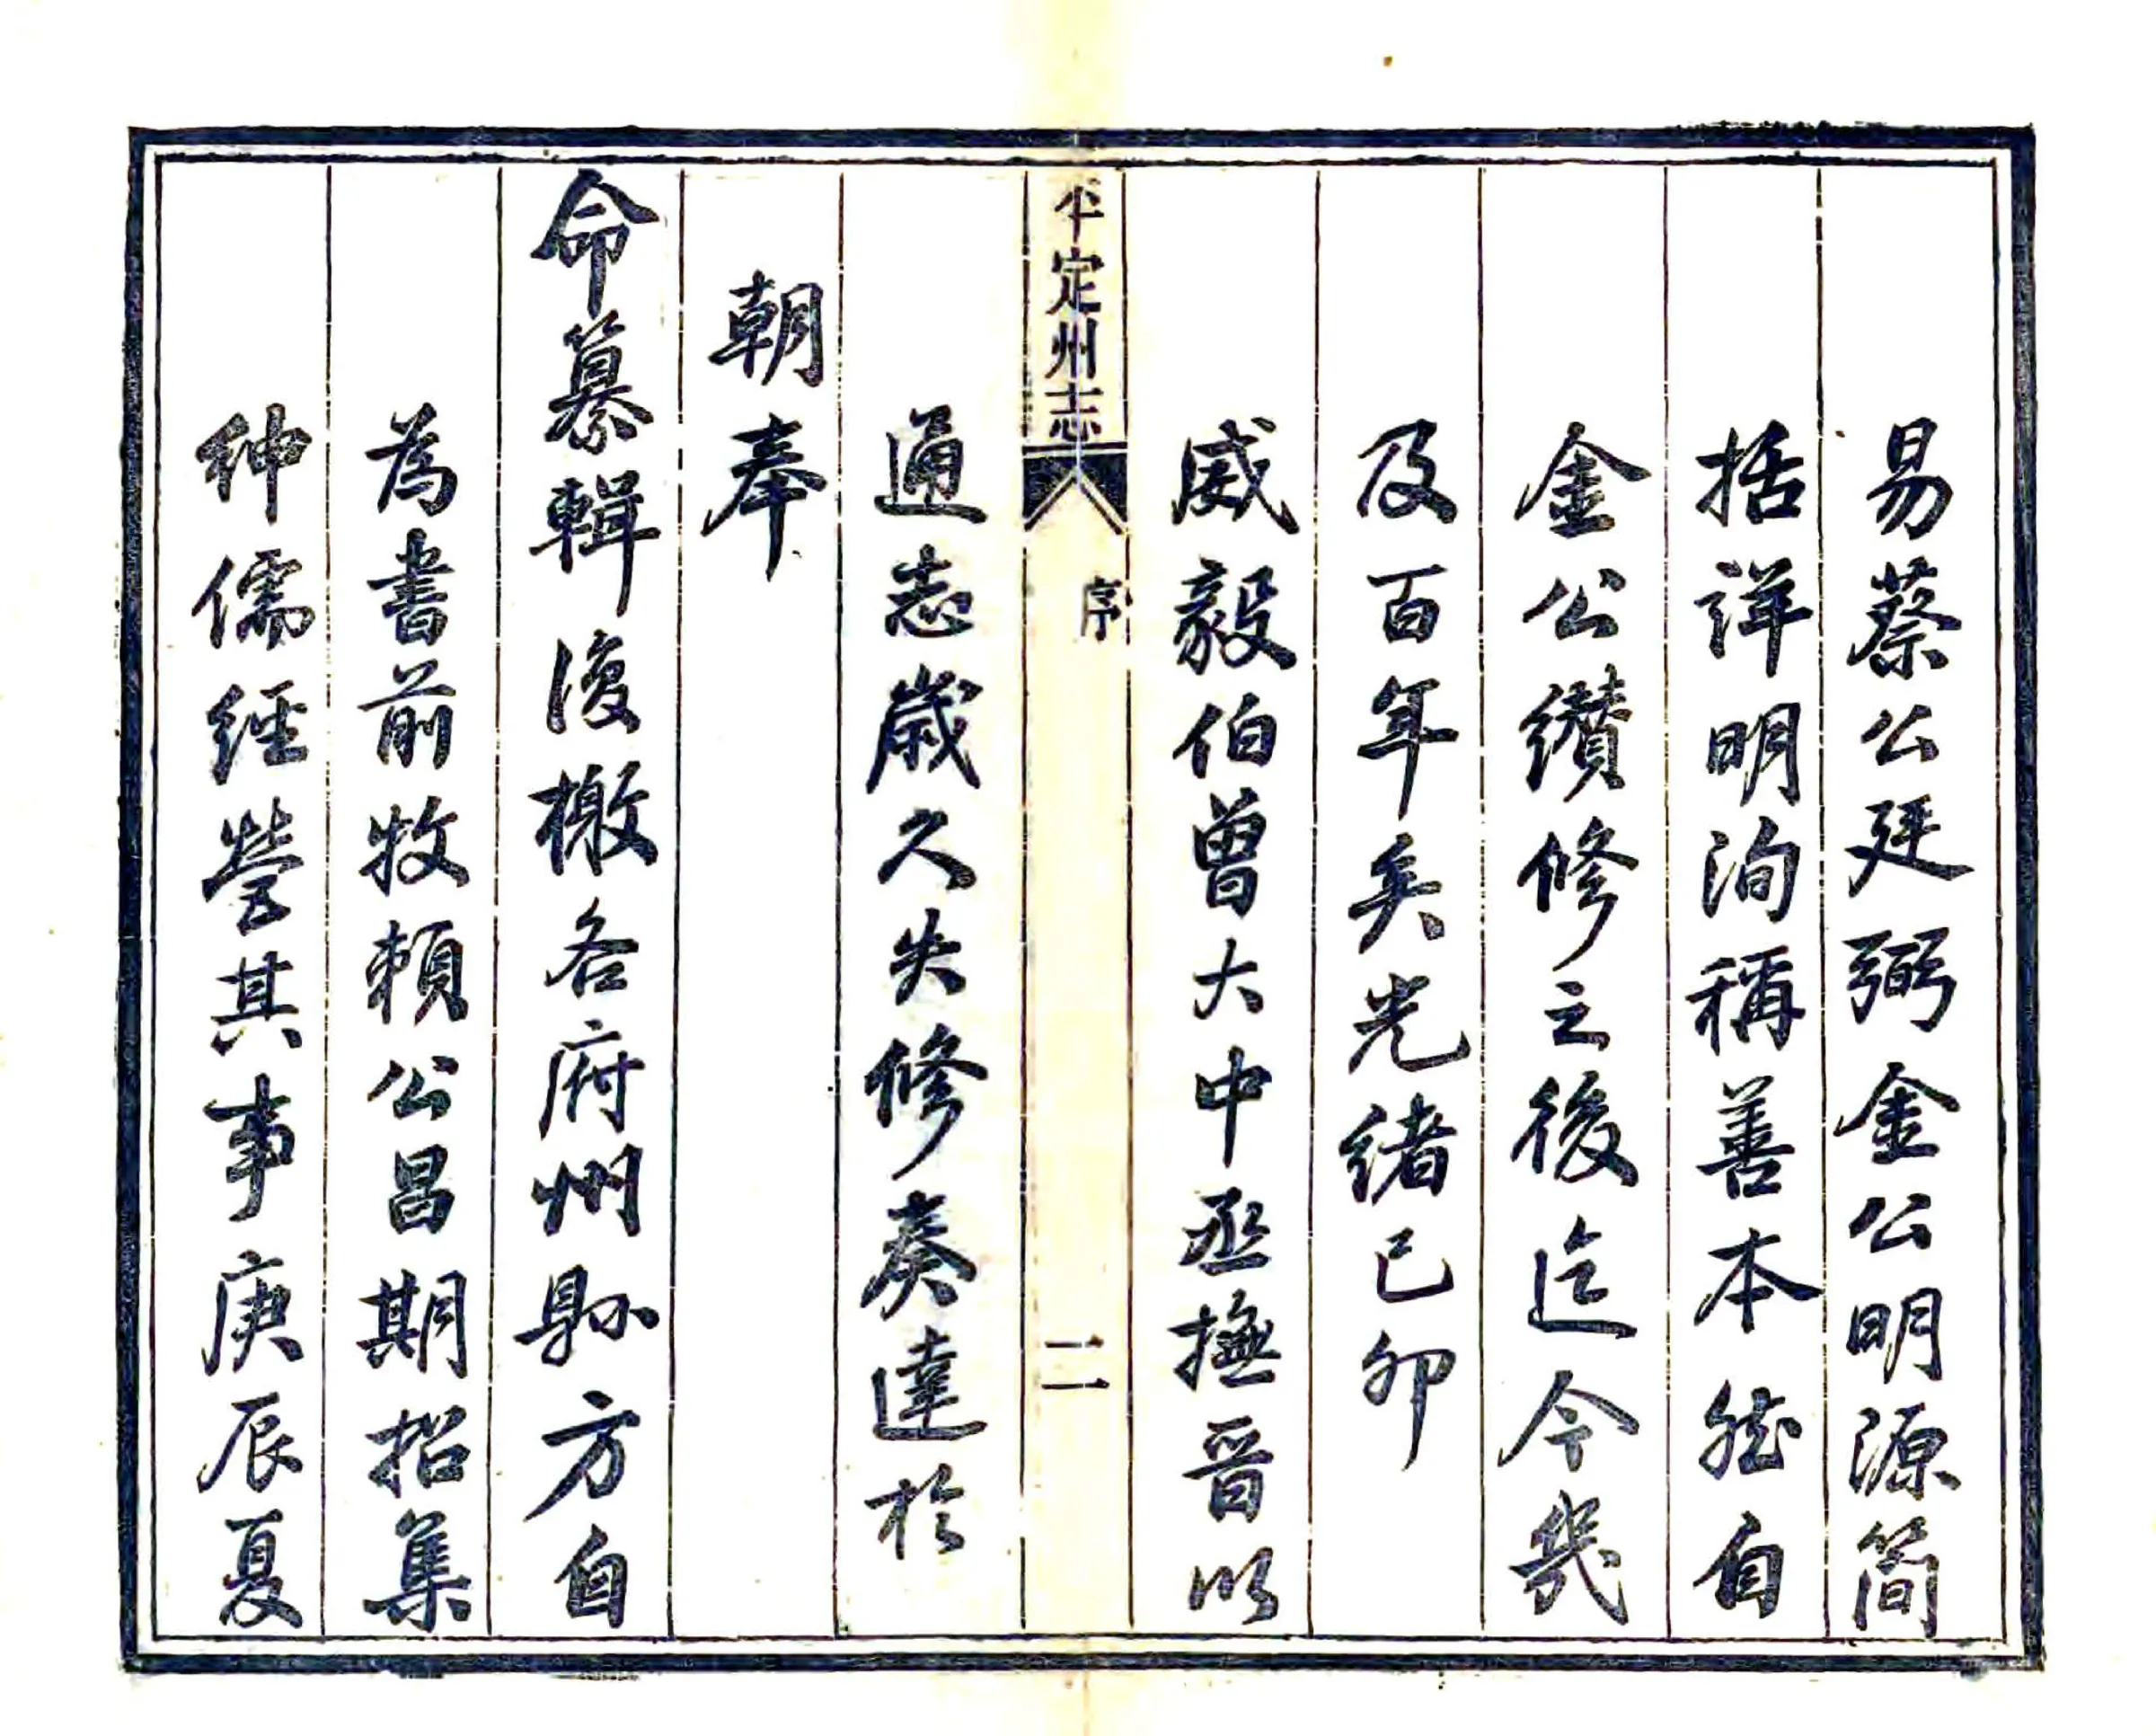 易蔡公廷弼金公明源簡
括詳明洵稱善本然自
金公纘修之後迄今幾
及百年矣光緒己卯
威毅伯曾大中丞撫晉以
平定州志
序
二
通志歲久失修奏達於
朝奉
命纂輯復檄各府州縣方自
為書前牧賴公昌期招集
紳儒經營其事庚辰夏